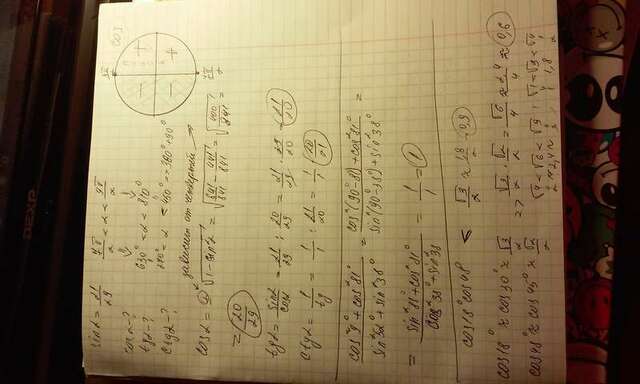 DEXP
sin α = 21/29   7π/2 < α < 9π/2
cos α - ?
tg α - ?   630° < α < 810°
ctg α - ?   270° < α < 450° = 360° + 90°
cos
− +
зависит от четверти
cos α = ± √(1 − sin²α) = √(841/841 − 441/841) = √(400/841) =
= 20/29
tg α = sin α/cos α = 21/29 : 20/29 = 21/29 · 29/20 = 21/20
ctg α = 1/tg = 1/1 : 21/20 = 1/1 · 20/21
(cos²9° + cos²81°)/(sin²52° + sin²38°) = (cos²(90−81) + cos²81°)/(sin²(90−38°) + sin²38°) =
= (sin²81° + cos²81°)/(cos²38° + sin²38°) = 1/1 = 1
cos18° cos48° < √3/2 ≈ 1,8/2 = 0,9
cos18° ≈ cos30° ≈ √3/2   => √3/2 · √2/2 = √6/4 ≈ 2,4/4 ≈ 0,6
cos48° ≈ cos45° ≈ √2/2   √4 < √6 < √9 ; √1 < √3 < √4
2 2,4 1 1,8 2